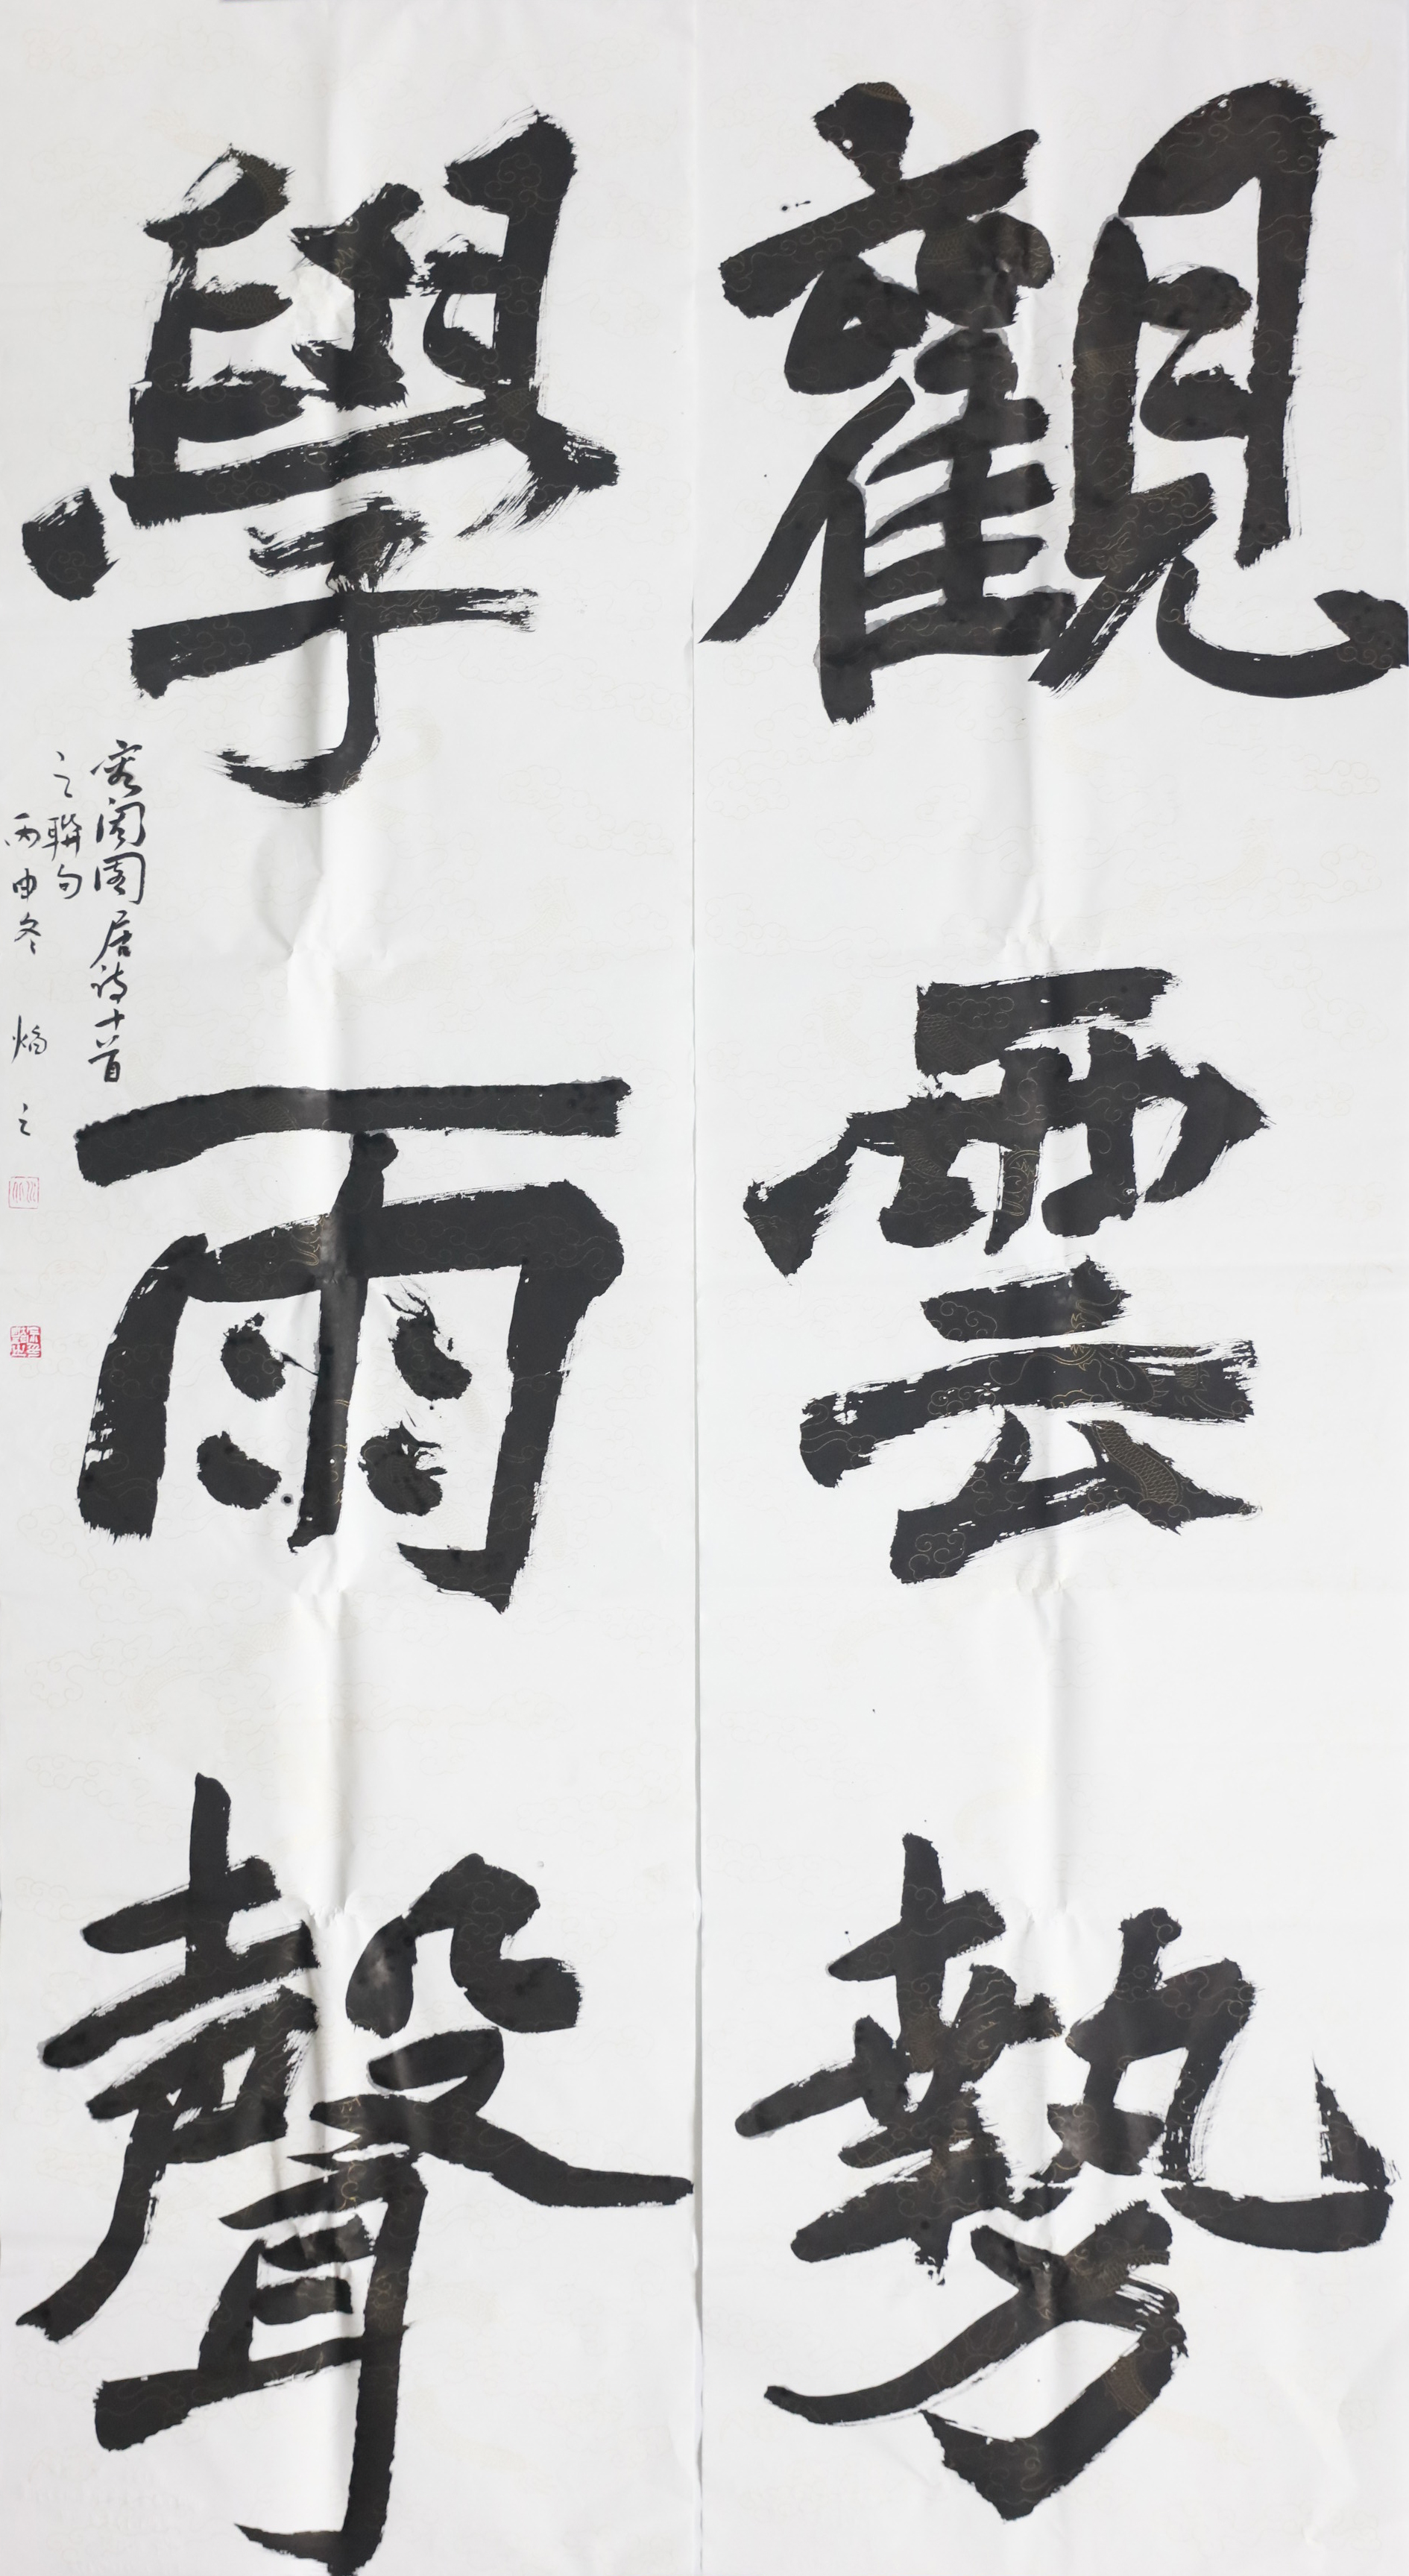 觀雲勢
學雨聲
居詩十首
之聯句
丙申冬 之